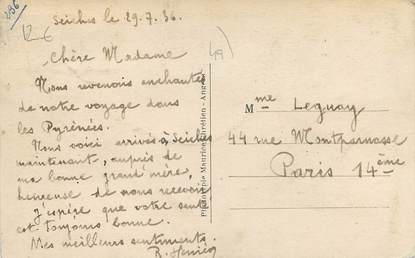 236
12€
49
Seiches le 29.7.36.
Chère Madame
Nous revenons enchantés
de notre voyage dans
les Pyrénées.
Nous voici arrivés à Seiches
maintenant, auprès de
ma bonne grand'mère,
heureuse de nous recevoir
J'espère que votre santé
est toujours bonne.
Mes meilleurs sentiments.
Phototypie Maurice Chrétien - Angers
Mme Leguay
44 rue Montparnasse
Paris 14ème